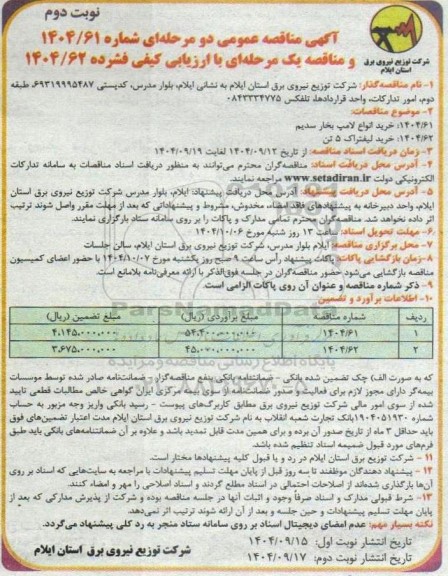 نوبت دوم
آگهی مناقصه عمومی دو مرحله‌ای شماره ۱۴۰۴/۶۱
و مناقصه یک مرحله‌ای با ارزیابی کیفی فشرده ۱۴۰۴/۶۲
شرکت توزیع نیروی برق
استان ایلام
۱- نام مناقصه‌گذار: شرکت توزیع نیروی برق استان ایلام به نشانی ایلام، بلوار مدرس، کدپستی ۶۹۳۱۹۹۹۵۴۸۷، طبقه
دوم، امور تدارکات، واحد قراردادها، تلفکس ۰۸۴۳۳۳۴۷۷۵
۲- موضوع مناقصات:
۱۴۰۴/۶۱: خرید انواع لامپ بخار سدیم
۱۴۰۴/۶۲: خرید لیفتراک ۵ تن
۳- زمان دریافت اسناد مناقصه: از تاریخ ۱۴۰۴/۰۹/۱۲ لغایت ۱۴۰۴/۰۹/۱۹
۴- آدرس محل دریافت اسناد: مناقصه‌گران محترم می‌توانند به منظور دریافت اسناد مناقصات به سامانه تدارکات
الکترونیکی دولت www.setadiran.ir مراجعه نمایند.
۵- آدرس محل دریافت پیشنهاد: آدرس محل دریافت پیشنهاد: ایلام، بلوار مدرس شرکت توزیع نیروی برق استان
ایلام، واحد دبیرخانه به پیشنهادهای فاقد امضاء، مخدوش، مشروط و پیشنهاداتی که بعد از مهلت مقرر واصل شوند ترتیب
اثر داده نخواهد شد. مناقصه‌گران محترم تمامی مدارک و پاکات را بر روی سامانه ستاد بارگزاری نمایند.
۶- مهلت تحویل اسناد: ساعت ۱۳ روز شنبه مورخ ۱۴۰۴/۱۰/۰۶
۷- محل برگزاری مناقصه: ایلام بلوار مدرس، شرکت توزیع نیروی برق استان ایلام، سالن جلسات
۸- زمان بازگشایی پاکات: پاکات پیشنهاد رأس ساعت ۹ صبح روز یکشنبه مورخ ۱۴۰۴/۱۰/۰۷ با حضور اعضای کمیسیون
مناقصه بازگشایی می‌شود حضور مناقصه‌گران در جلسه فوق‌الذکر با ارائه معرفی‌نامه بلامانع است.
۹- ذکر شماره مناقصه و عنوان آن روی پاکات الزامی است.
۱۰- اطلاعات برآورد و تضمین
ردیف شماره مناقصه مبلغ برآوردی (ریال) مبلغ تضمین (ریال)
۱ ۱۴۰۴/۶۱ ۵۴،۴۰۰،۰۰۰،۰۰۰ ۴،۱۴۵،۰۰۰،۰۰۰
۲ ۱۴۰۴/۶۲ ۴۵،۰۰۰،۰۰۰،۰۰۰ ۳،۶۷۵،۰۰۰،۰۰۰
که به صورت الف) چک تضمین شده بانکی - ضمانتنامه بانکی به نفع مناقصه‌گزار - ضمانت‌نامه صادر شده توسط موسسات
بیمه‌گر دارای مجوز لازم برای فعالیت و صدور ضمانتنامه از سوی بیمه مرکزی ایران گواهی خالص مطالبات قطعی تایید
شده از سوی امور مالی شرکت توزیع نیروی برق مطابق کاربرگ‌های پیوست - رسید بانکی واریز وجه مزبور به حساب
بانک تجارت شعبه انقلاب به نام شرکت توزیع نیروی برق استان ایلام مدت اعتبار تضمین‌های فوق
باید حداقل ۳ ماه از تاریخ صدور آن برده و برای همین مدت قابل تمدید باشد و علاوه بر آن ضمانتنامه‌های بانکی باید طبق
فرم‌های مورد قبول ضمیمه اسناد تنظیم شده باشد.
۱۱ - شرکت توزیع نیروی برق استان ایلام در رد و یا قبول کلیه پیشنهادها مختار است.
۱۲ - پیشنهاد دهندگان موظفند تا سه روز قبل از پایان مهلت تسلیم پیشنهادات با مراجعه به سایت‌هایی که اسناد بر روی
آن‌ها بازگذاری شده‌اند از اصلاحات احتمالی در اسناد مطلع گردند و اسناد اصلاحی را مهر و امضاء کنند.
۱۳- شرط قبولی مدارک و اسناد صرفاً وجود و اثبات آنها در جلسه مناقصه بوده و شرکت از پذیرش مدارکی که بعد از
پایان مهلت تسلیم پیشنهادات و حین جلسه و بعد از آن ارائه شوند ترتیب اثر نمی‌دهد.
نکته بسیار مهم: عدم امضای دیجیتال اسناد بر روی سامانه ستاد منجر به رد کلی پیشنهاد می‌گردد.
تاریخ انتشار نوبت اول: ۱۴۰۴/۰۹/۱۵
تاریخ انتشار نوبت دوم: ۱۴۰۴/۰۹/۱۷
شرکت توزیع نیروی برق استان ایلام